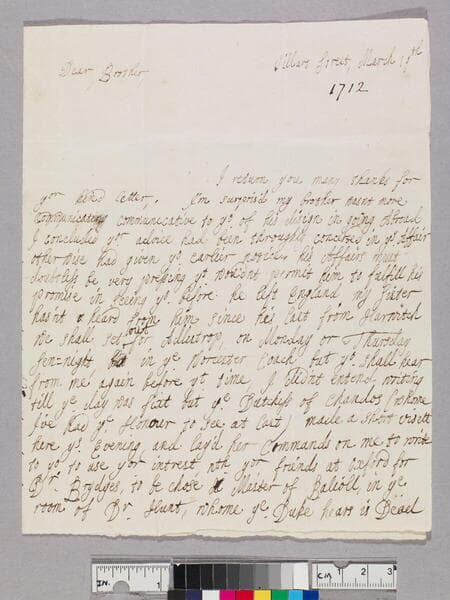 Dear Brother
Villars Street, March 19th
1712
I return you many thanks for
yor kind letter, I'm surpris'd my brother wasnt more
communicative to yo of his design in going abroad
I concluded yor advice had been throughly concerted in ys Affair
otherwise had given yo earlier notice, his Affairs must
doubtless be very pressing yt wou'dnt permit him to fulfill his
promise in seeing yo before he left England, my sister
hasnt heard from him since his last from Harwich
we shall set out for Adlestrop, on Monday or Thursday
sen=night in ye Worcester Coach but yo shall hear
from me again before yt time I didnt entend writing
till ye day was fixt but ye Dutchess of Chandos (whome
I've had ye Honour to see at last) made a short visett
here ys Evening and lay'd her Commands on me to write
to yo to use yor interest with yor friends at oxford for
Dr Brydges, to be chose Master of Balioll, in ye
room of Dr Hunt, whome ye Duke hears is Dead
IN. 1
CM 1 2 3